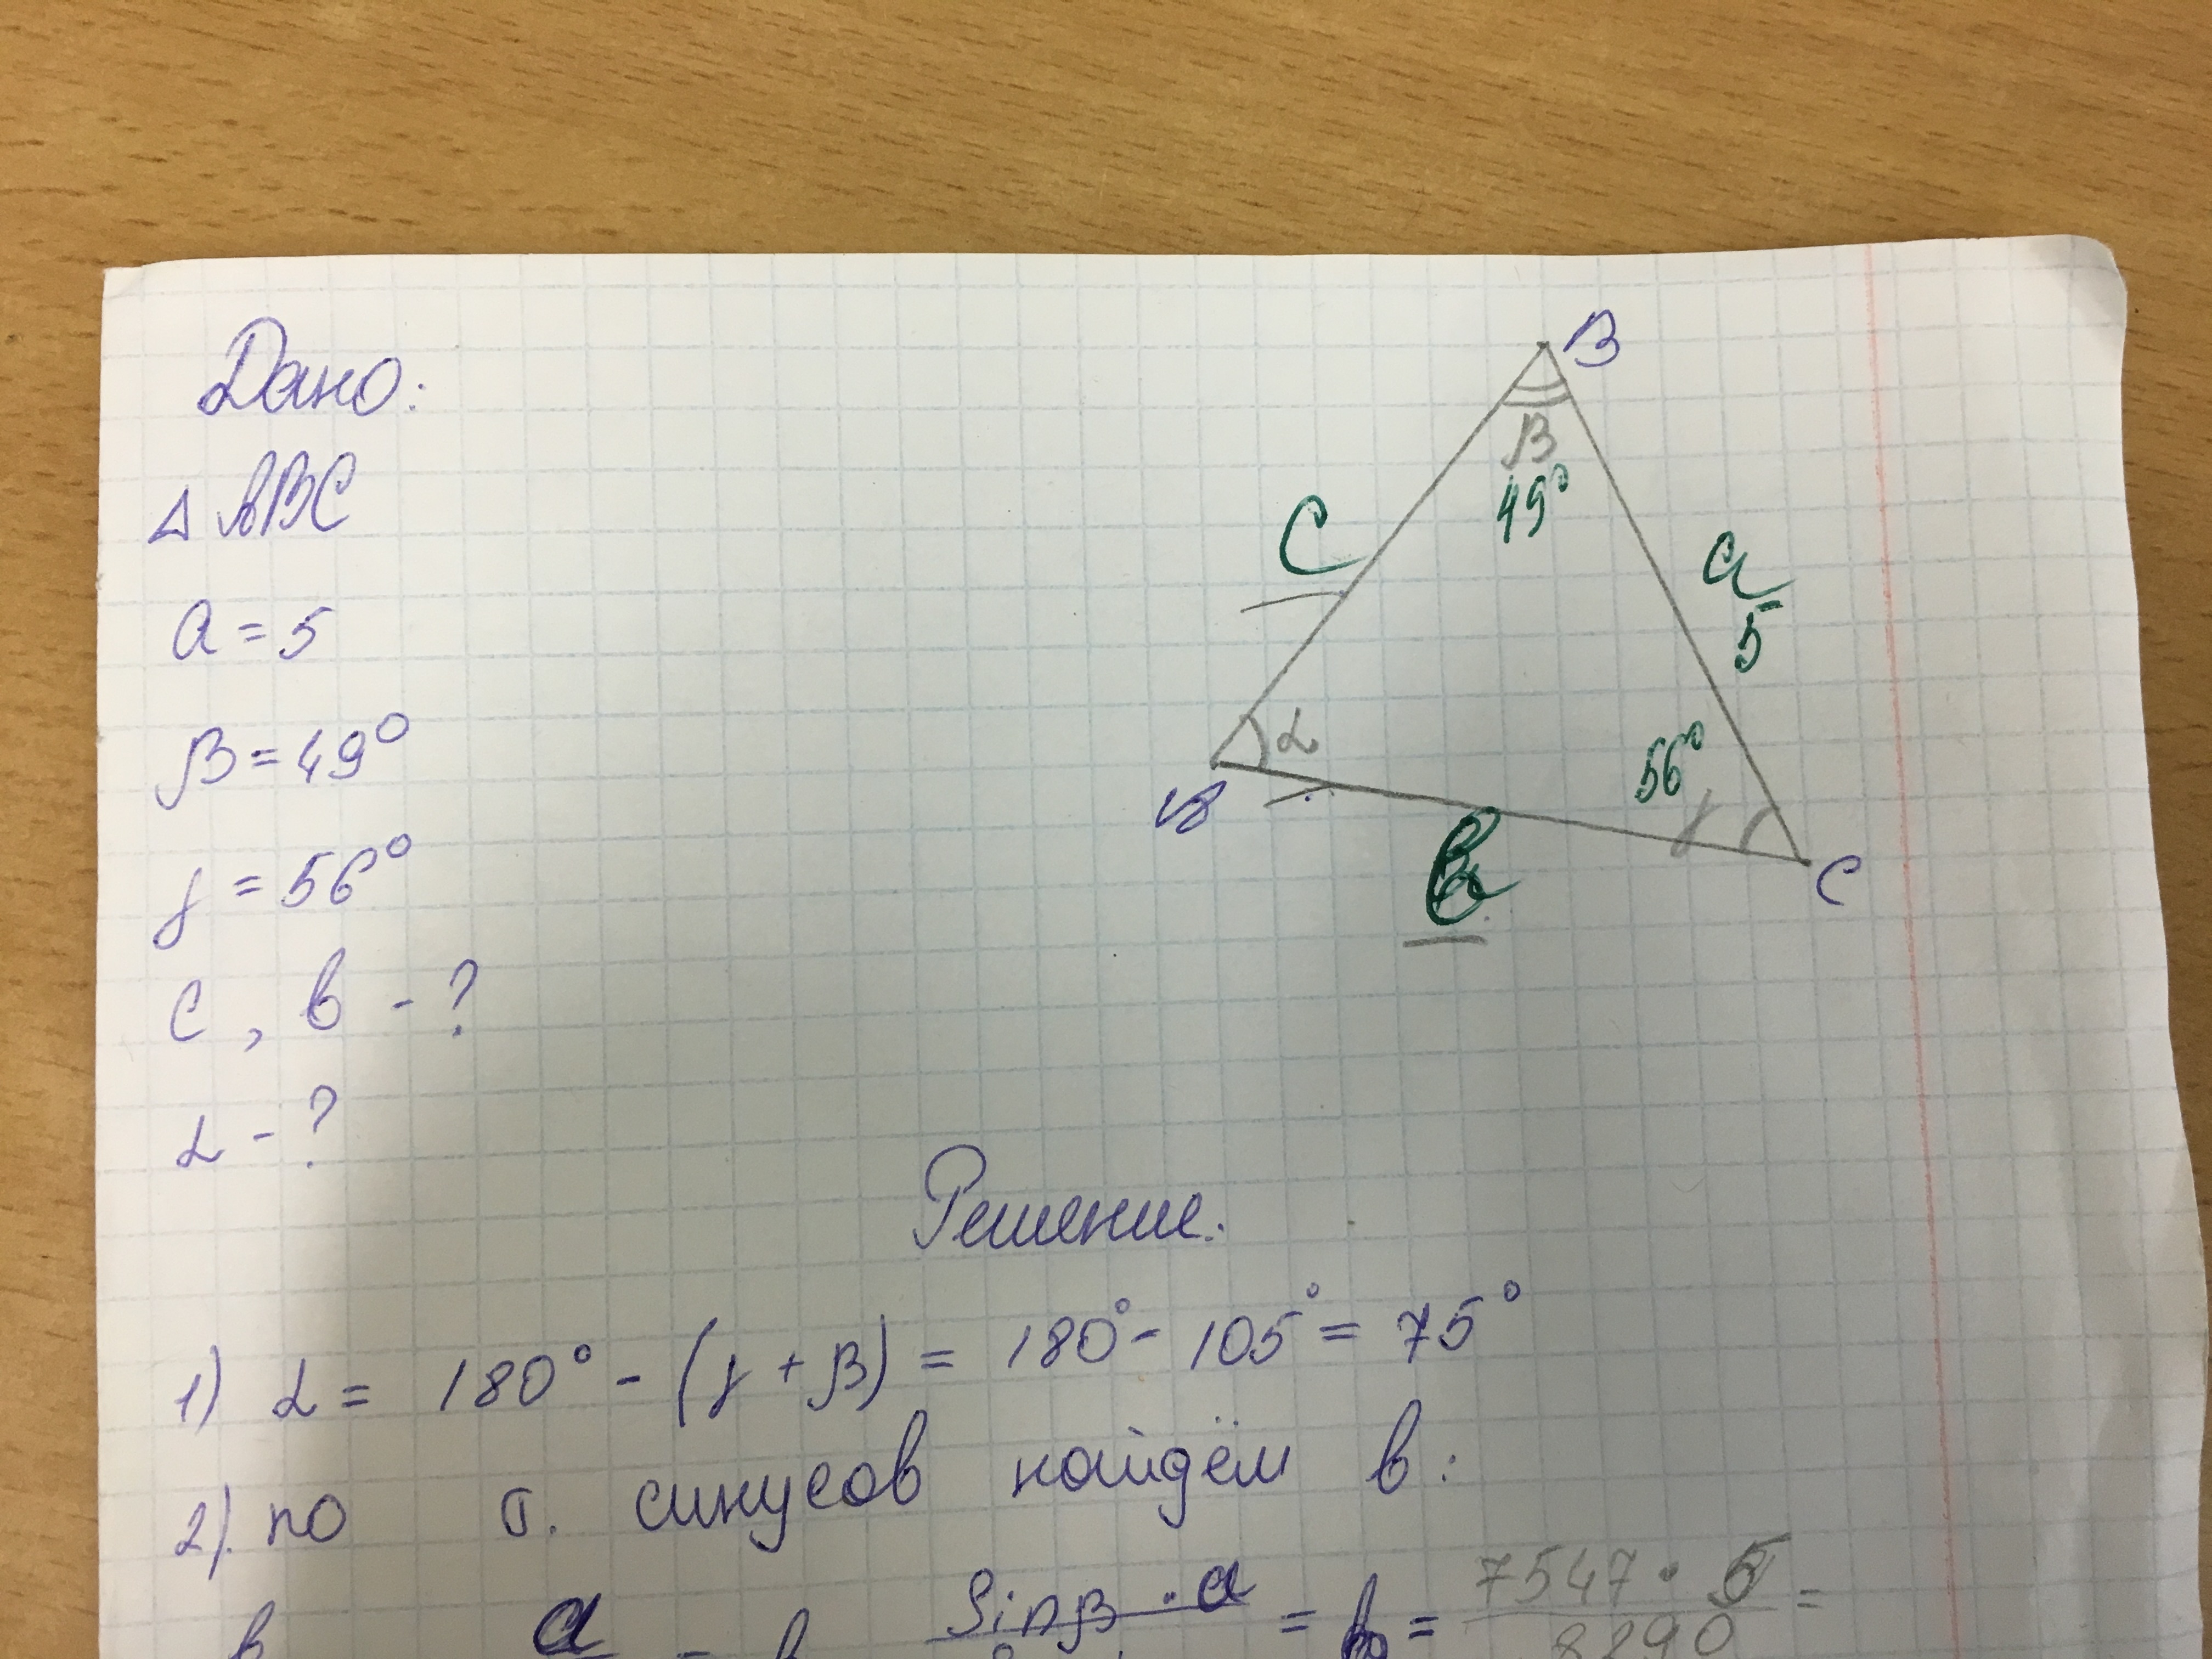 Дано:
△ ABC
a = 5
β = 49°
γ = 56°
c, в - ?
α - ?
B
β
49°
c
a
5
α
56°
γ
A
в
C
Решение:
1) α = 180° - (γ + β) = 180° - 105° = 75°
2). по т. синусов найдём в:
в a = в sinβ · a = в = 7547 · 5 =
8290